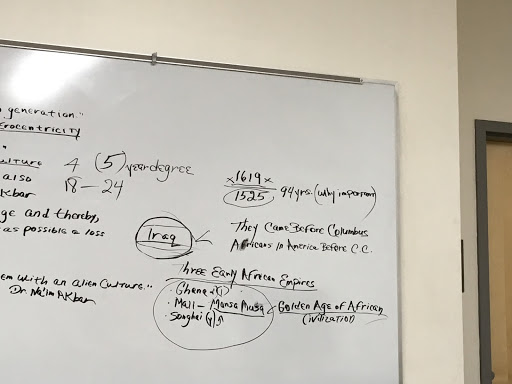 generation."
rocentricity
"
ulture
also
kbar
ge and thereby,
as possible a loss
em with an alien Culture."
Dr. Na'im Akbar
4 (5) year degree
18 – 24
x1619x
1525 94 yrs. (why important)
Iraq
They Came Before Columbus
Africans in America Before C.C.
Three Early African Empires
· Ghana
· Mali – Mansa Musa
· Songhai
Golden Age of African
Civilization)